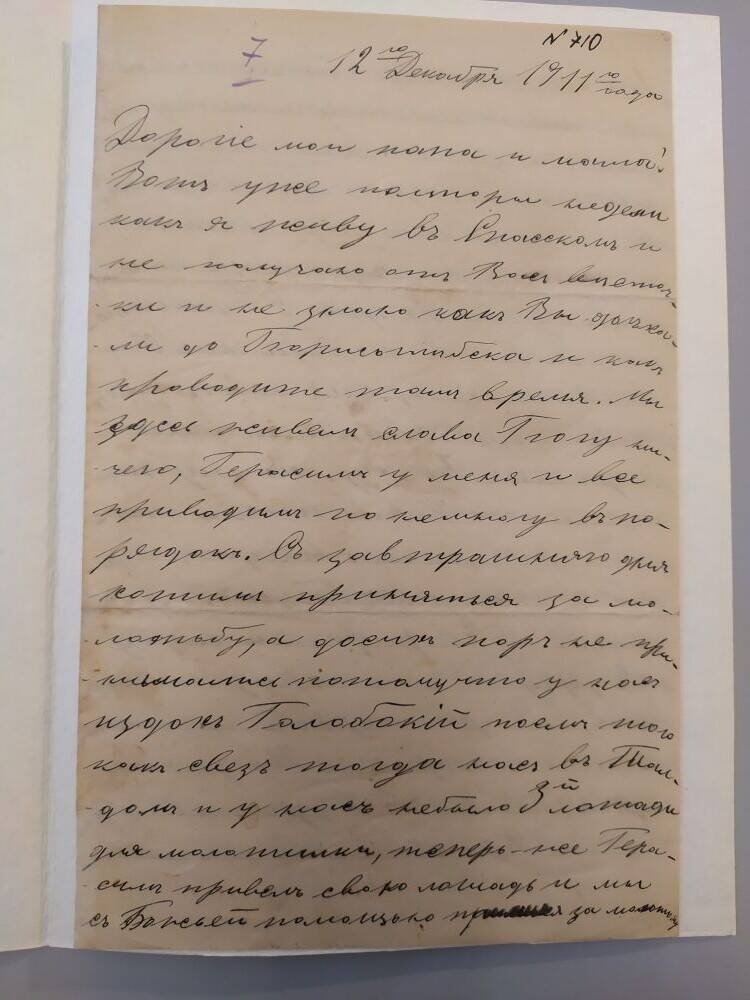 7
N 710
12го Декабря 1911го года
Дорогіе мои папа и мама!
Вотъ уже полторы недели
какъ я живу въ Спасскомъ и
не получаю отъ Васъ весточ-
ки и не знаю какъ Вы доеха-
ли до Борисоглебска и какъ
проводите тамъ время. Мы
здесь живемъ слава Богу ни-
чего, Герасимъ у меня и все
приводимъ по немногу въ по-
рядокъ. Съ завтрашняго дня
хотимъ приняться за мо-
лотьбу, а досихъ поръ не при-
нимались потомучто у насъ
издохъ Голобокій после того
какъ свезъ тогда насъ въ Тал-
домъ и у насъ небыло 3й лошади
для молотилки, теперь-же Гера-
симъ привелъ свою лошадь и мы
съ Божьей помощью за молотьбу